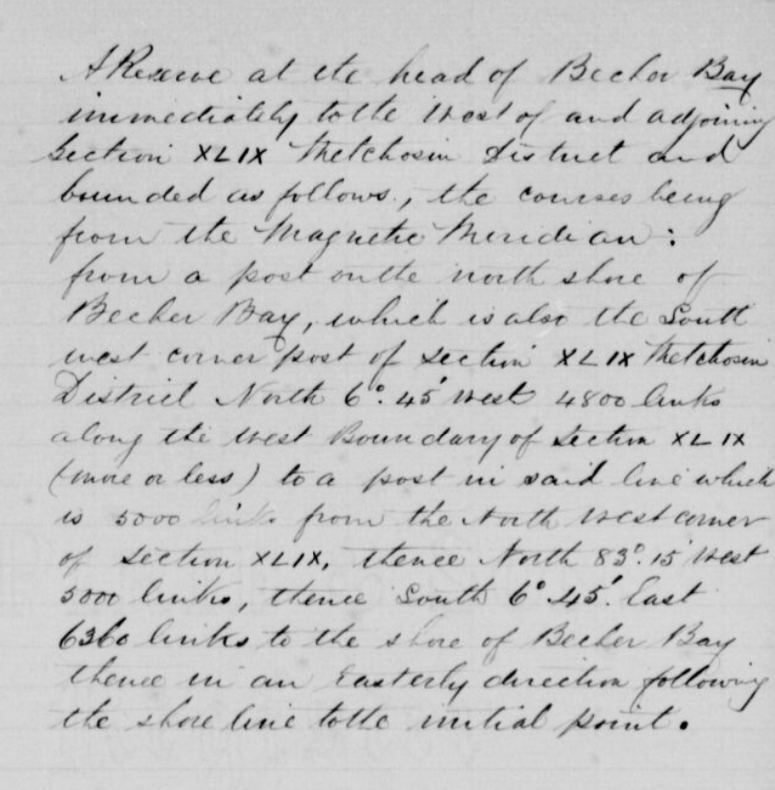 A Reserve at the head of Becher Bay
immediately to the West of and adjoining
Section XLIX Metchosin District and
bounded as follows, the courses being
from the Magnetic Meridian:
from a post on the north shore of
Becher Bay, which is also the South
west corner post of Section XLIX Metchosin
District North 6°.45' West 4800 links
along the West Boundary of Section XLIX
(more or less) to a post in said line which
is 5000 links from the North West corner
of Section XLIX, thence North 83°.15' West
5000 links, thence South 6°.45'. East
6360 links to the shore of Becher Bay
thence in an Easterly direction following
the shore line to the initial point.